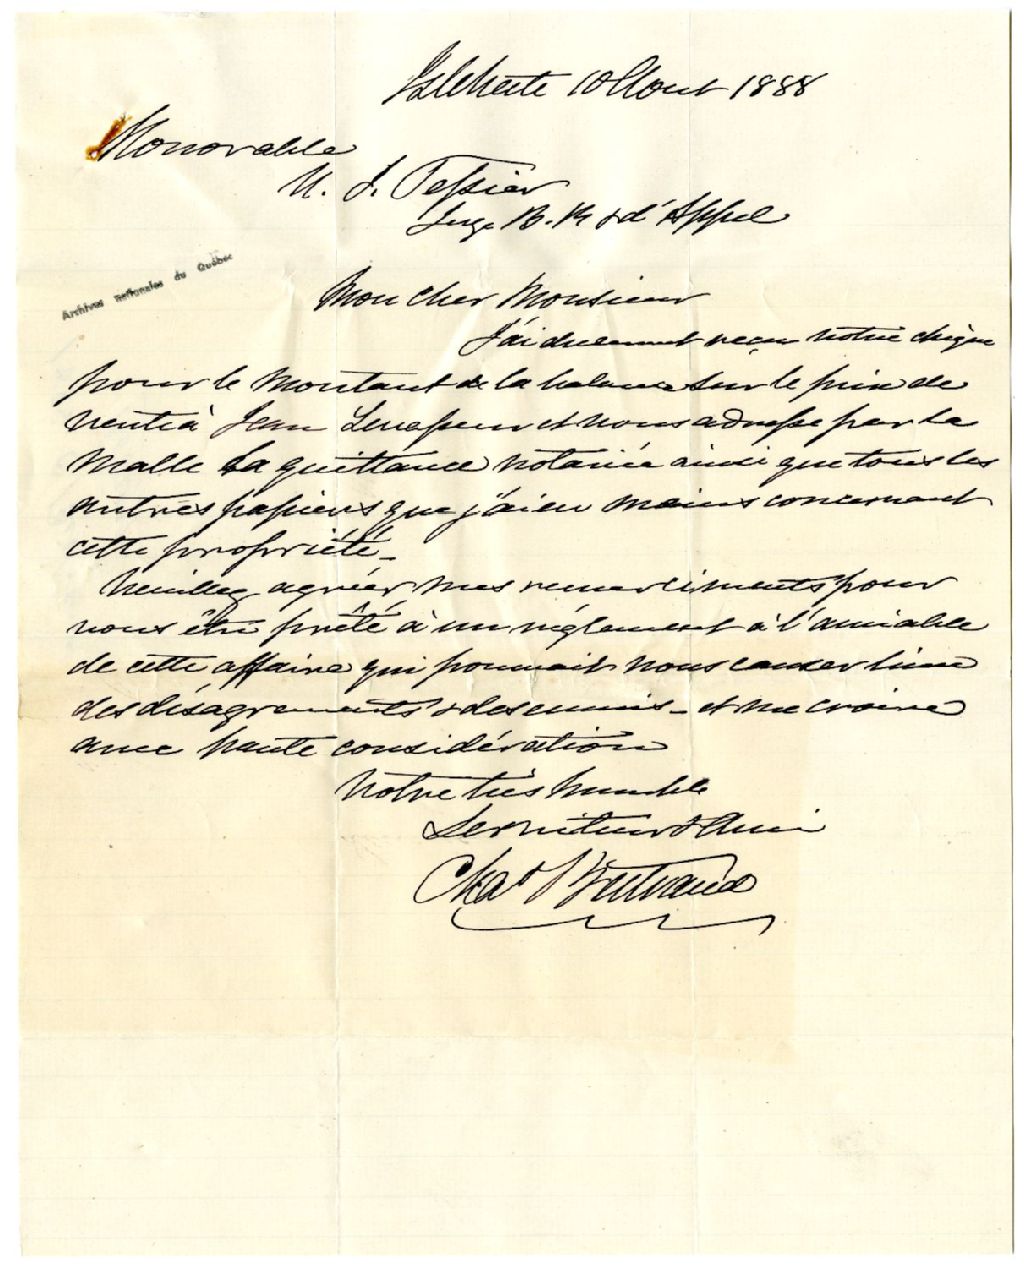 IsleVerte 10 Aout 1888
Honorable
U. J. Tessier
Juge B. R & d'Appel
Archives nationales du Québec
Mon cher Monsieur
J'ai duement reçu votre chèque
pour le montant de la balance sur le prix de
vente à Jean et vous adresse par la
Malle la quittance notariée ainsi que tous les
autres papiers que j'ai en mains concernant
cette propriété_
Veuillez agréer mes remerciments pour
vous être prêté à un réglement à l'amiable
de cette affaire qui pouvait nous causer bien
des désagrements & des ennuis_ et me croire
avec haute considération
Votre très humble
Serviteur & Ami
Chas Bertrand